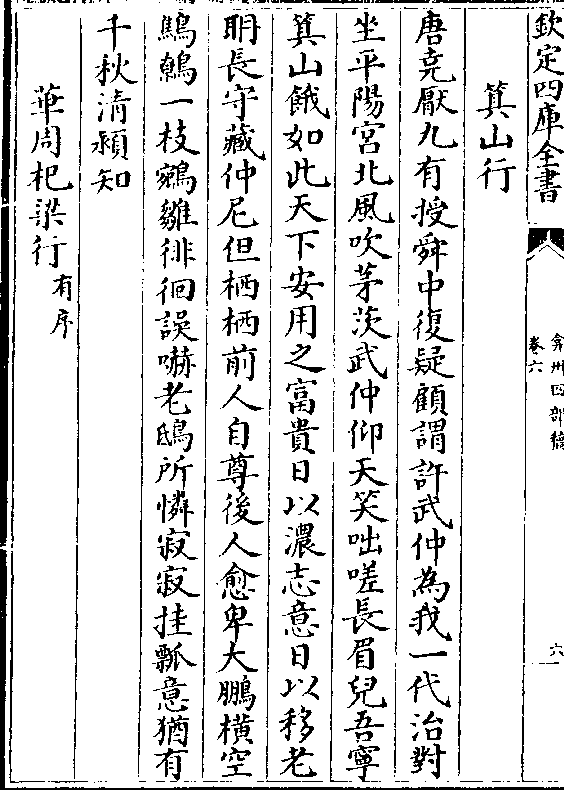 欽定四庫全書
弇州四部稿
卷六
六
箕山行
唐堯厭九有授舜中復疑顧謂許武仲為我一代治對
坐平陽宮北風吹茅茨武仲仰天笑咄嗟長眉兒吾寧
箕山餓如此天下安用之富貴日以濃志意日以移老
明長守藏仲尼但栖栖前人自尊後人愈卑大鵬橫空
鷦鷯一枝鵷雛徘徊誤嚇老鴟所憐寂寂挂瓢意猶有
千秋清潁知
華周杞梁行有序